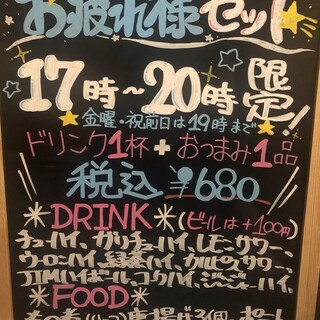 お疲れ様セット
17時～20時限定!
金曜・祝前日は19時まで
ドリンク1杯+おつまみ1品
税込 ¥680
*DRINK*(ビールは+100円)
チューハイ、ガリチューハイ、レモンサワー、
ウーロンハイ、緑茶ハイ、カルピスサワー、
JIMハイボール、コークハイ、ジンジャーハイ、
*FOOD*
唐揚げ